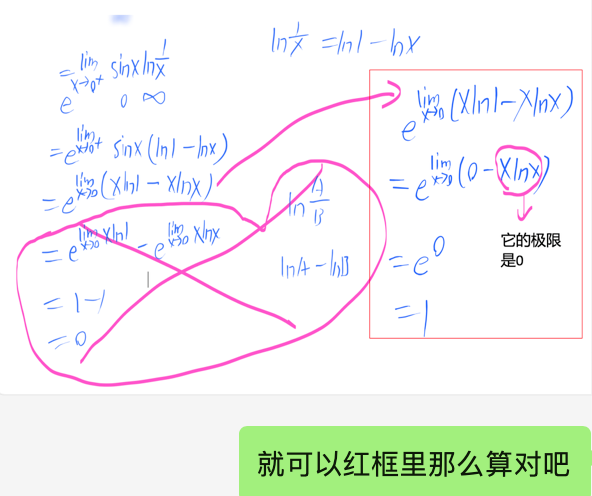 ln 1/x = ln1 - lnx
= e^{lim x→0⁺ sinx ln 1/x}
0 ∞
= e^{lim x→0⁺ sinx (ln1 - lnx)}
= e^{lim x→0 (xln1 - xlnx)}
= e^{lim x→0 xln1} - e^{lim x→0 xlnx}
= 1-1
= 0
ln A/B
lnA - lnB
e^{lim x→0 (xln1 - xlnx)}
= e^{lim x→0 (0 - xlnx)}
它的极限
是0
= e^0
= 1
就可以红框里那么算对吧